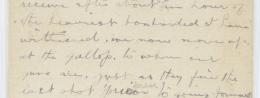 receive after about an hour of
the heaviest bombarded I have
witnessed, we now move up
at the gallop, to when our
guns are, just as they fire the
last shot